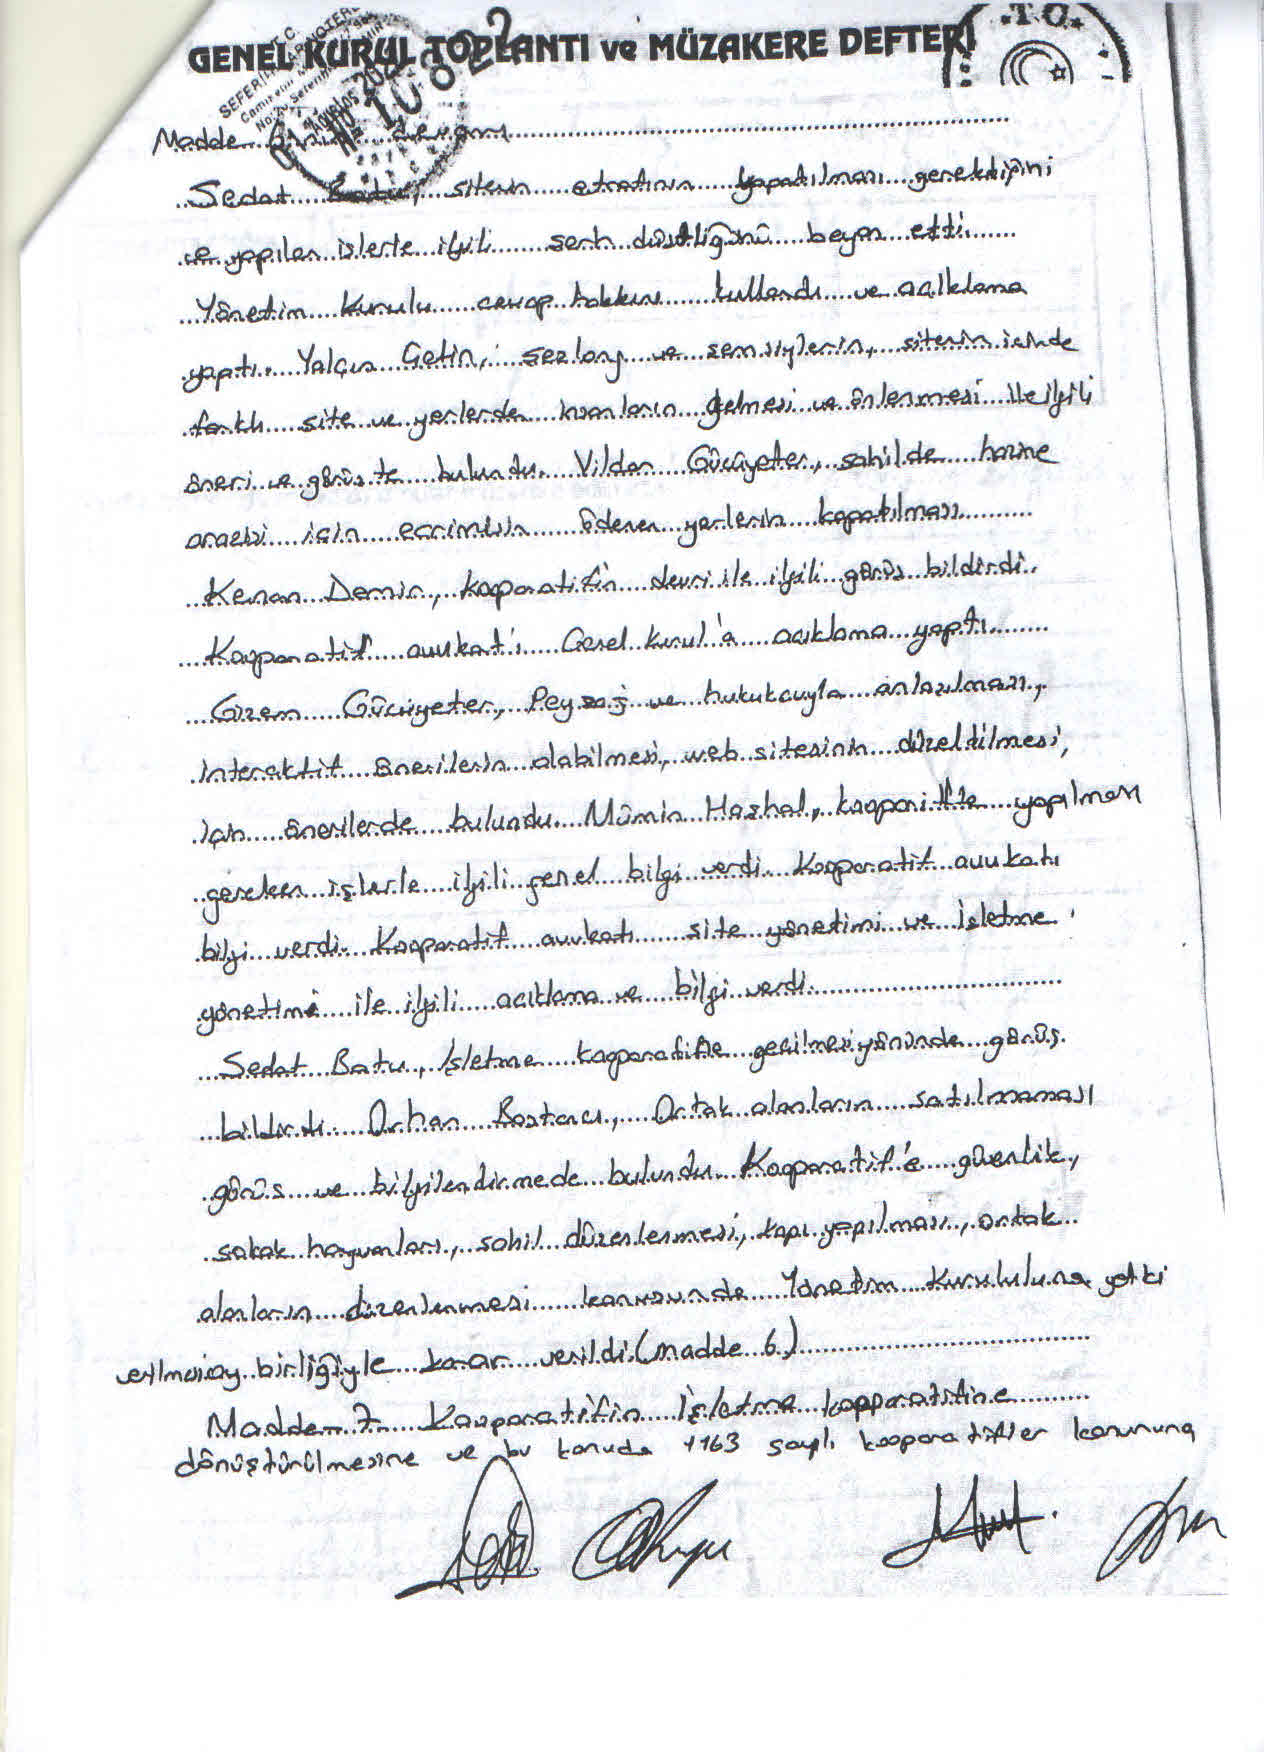 GENEL KURUL TOPLANTI ve MÜZAKERE DEFTERİ
T.C.
SEFERİH
No:
Madde 6 devamı
Sedat Batu, sitenin etrafının yapatılması gerektiğini
ve yapılan işlerle ilgili şerh düştüğünü beyan etti.
Yönetim Kurulu cevap hakkını kullandı ve açıklama
yaptı. Yalçın Çetin, şezlong ve şemsiylerin, sitenin içinde
farklı site ve yerlerden insanların gelmesi ve önlenmesi ile ilgili
öneri ve görüşte bulundu. Vildan Gücüyeter, sahilde hazine
arazisi için ecrimisin ödenen yerlerin kapatılması
Kenan Demir, kooparatifin devri ile ilgili görüş bildirdi.
Kooparatif avukatı Genel kurul'a açıklama yaptı.
Gizem Gücüyeter, Peyzaj ve hukukcuyla anlaşılması,
interaktif önerilerin alabilmesi, web sitesinin düzeltilmesi,
için önerilerde bulundu. Mümin Hashal, kooparitifte yapılması
gereken işlerle ilgili genel bilgi verdi. Kooparatif avukatı
bilgi verdi. Kooparatif avukatı site yönetimi ve işletme
yönetimi ile ilgili açıklama ve bilgi verdi.
Sedat Batu, İşletme kooparatifine geçilmesi yönünde görüş
bildirdi. Orhan Bostancı, Ortak alanların satılmaması
görüş ve bilgilendirmede bulundu. Kooparatif'e güvenlik,
sokak hayvanları, sahil düzenlenmesi, kapı yapılması, ortak
alanların düzenlenmesi konusunda Yönetim Kurululuna yetki
verilmesi oy birliğiyle karar verildi. (madde 6)
Madde 7 Kooparatifin İşletme kopparatifine
dönüştürülmesine ve bu konuda 1163 sayılı kooparatifler kanununa